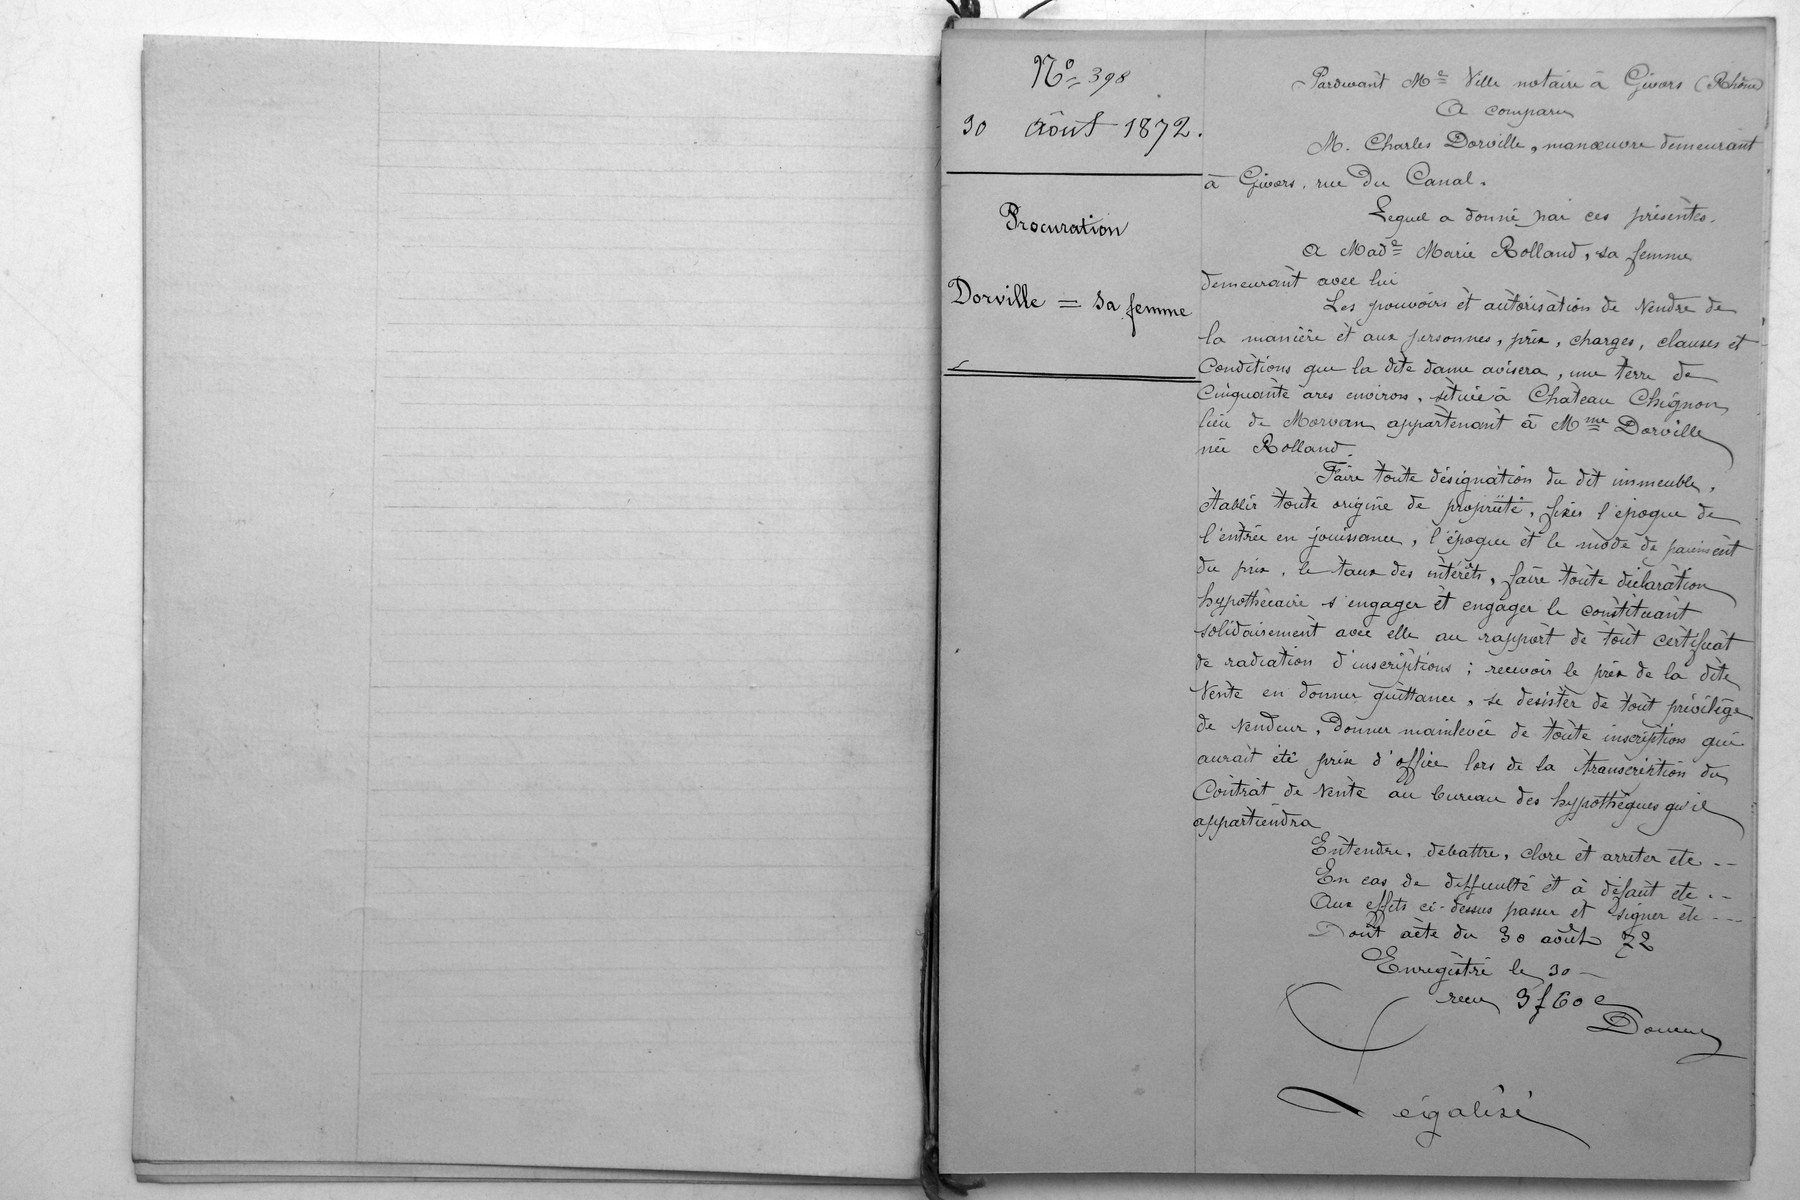 N° 398
30 Août 1872.
Procuration
Dorville = Sa femme
Pardevant Me Ville notaire à Givors (Rhône)
A comparu
M. Charles Dorville, manœuvre demeurant
à Givors, rue du Canal.
Lequel a donné par ces présentes.
A Made Marie Rolland, sa femme
demeurant avec lui
Les pouvoirs et autorisation de Vendre de
la manière et aux personnes, prix, charges, clauses et
Conditions que la dite dame avisera, une terre de
Cinquante ares environ, située à Château Chignon
lieu de Morvan appartenant à Mme Dorville
née Rolland.
Faire toute désignation du dit immeuble,
établir toute origine de propriété, fixer l'époque de
l'entrée en jouissance, l'époque et le mode de paiement
du prix, le taux des intérêts, faire toute déclaration
hypothécaire s'engager et engager le constituant
solidairement avec elle au rapport de tout certificat
de radiation d'inscriptions ; recevoir le prix de la dite
Vente en donner quittance, se desister de tout privilège
de Vendeur, Donner mainlevée de toute inscription qui
aurait été prise d'office lors de la transcription du
Contrat de Vente au bureau des hypothèques qu'il
appartiendra
Entendre, debattre, clore et arreter etc --
En cas de difficulté et à défaut etc --
Aux effets ci-dessus passer et signer etc ---
Dont acte du 30 août 72
Enregistré le 30 -
recu 3f 60 c
Légalisé